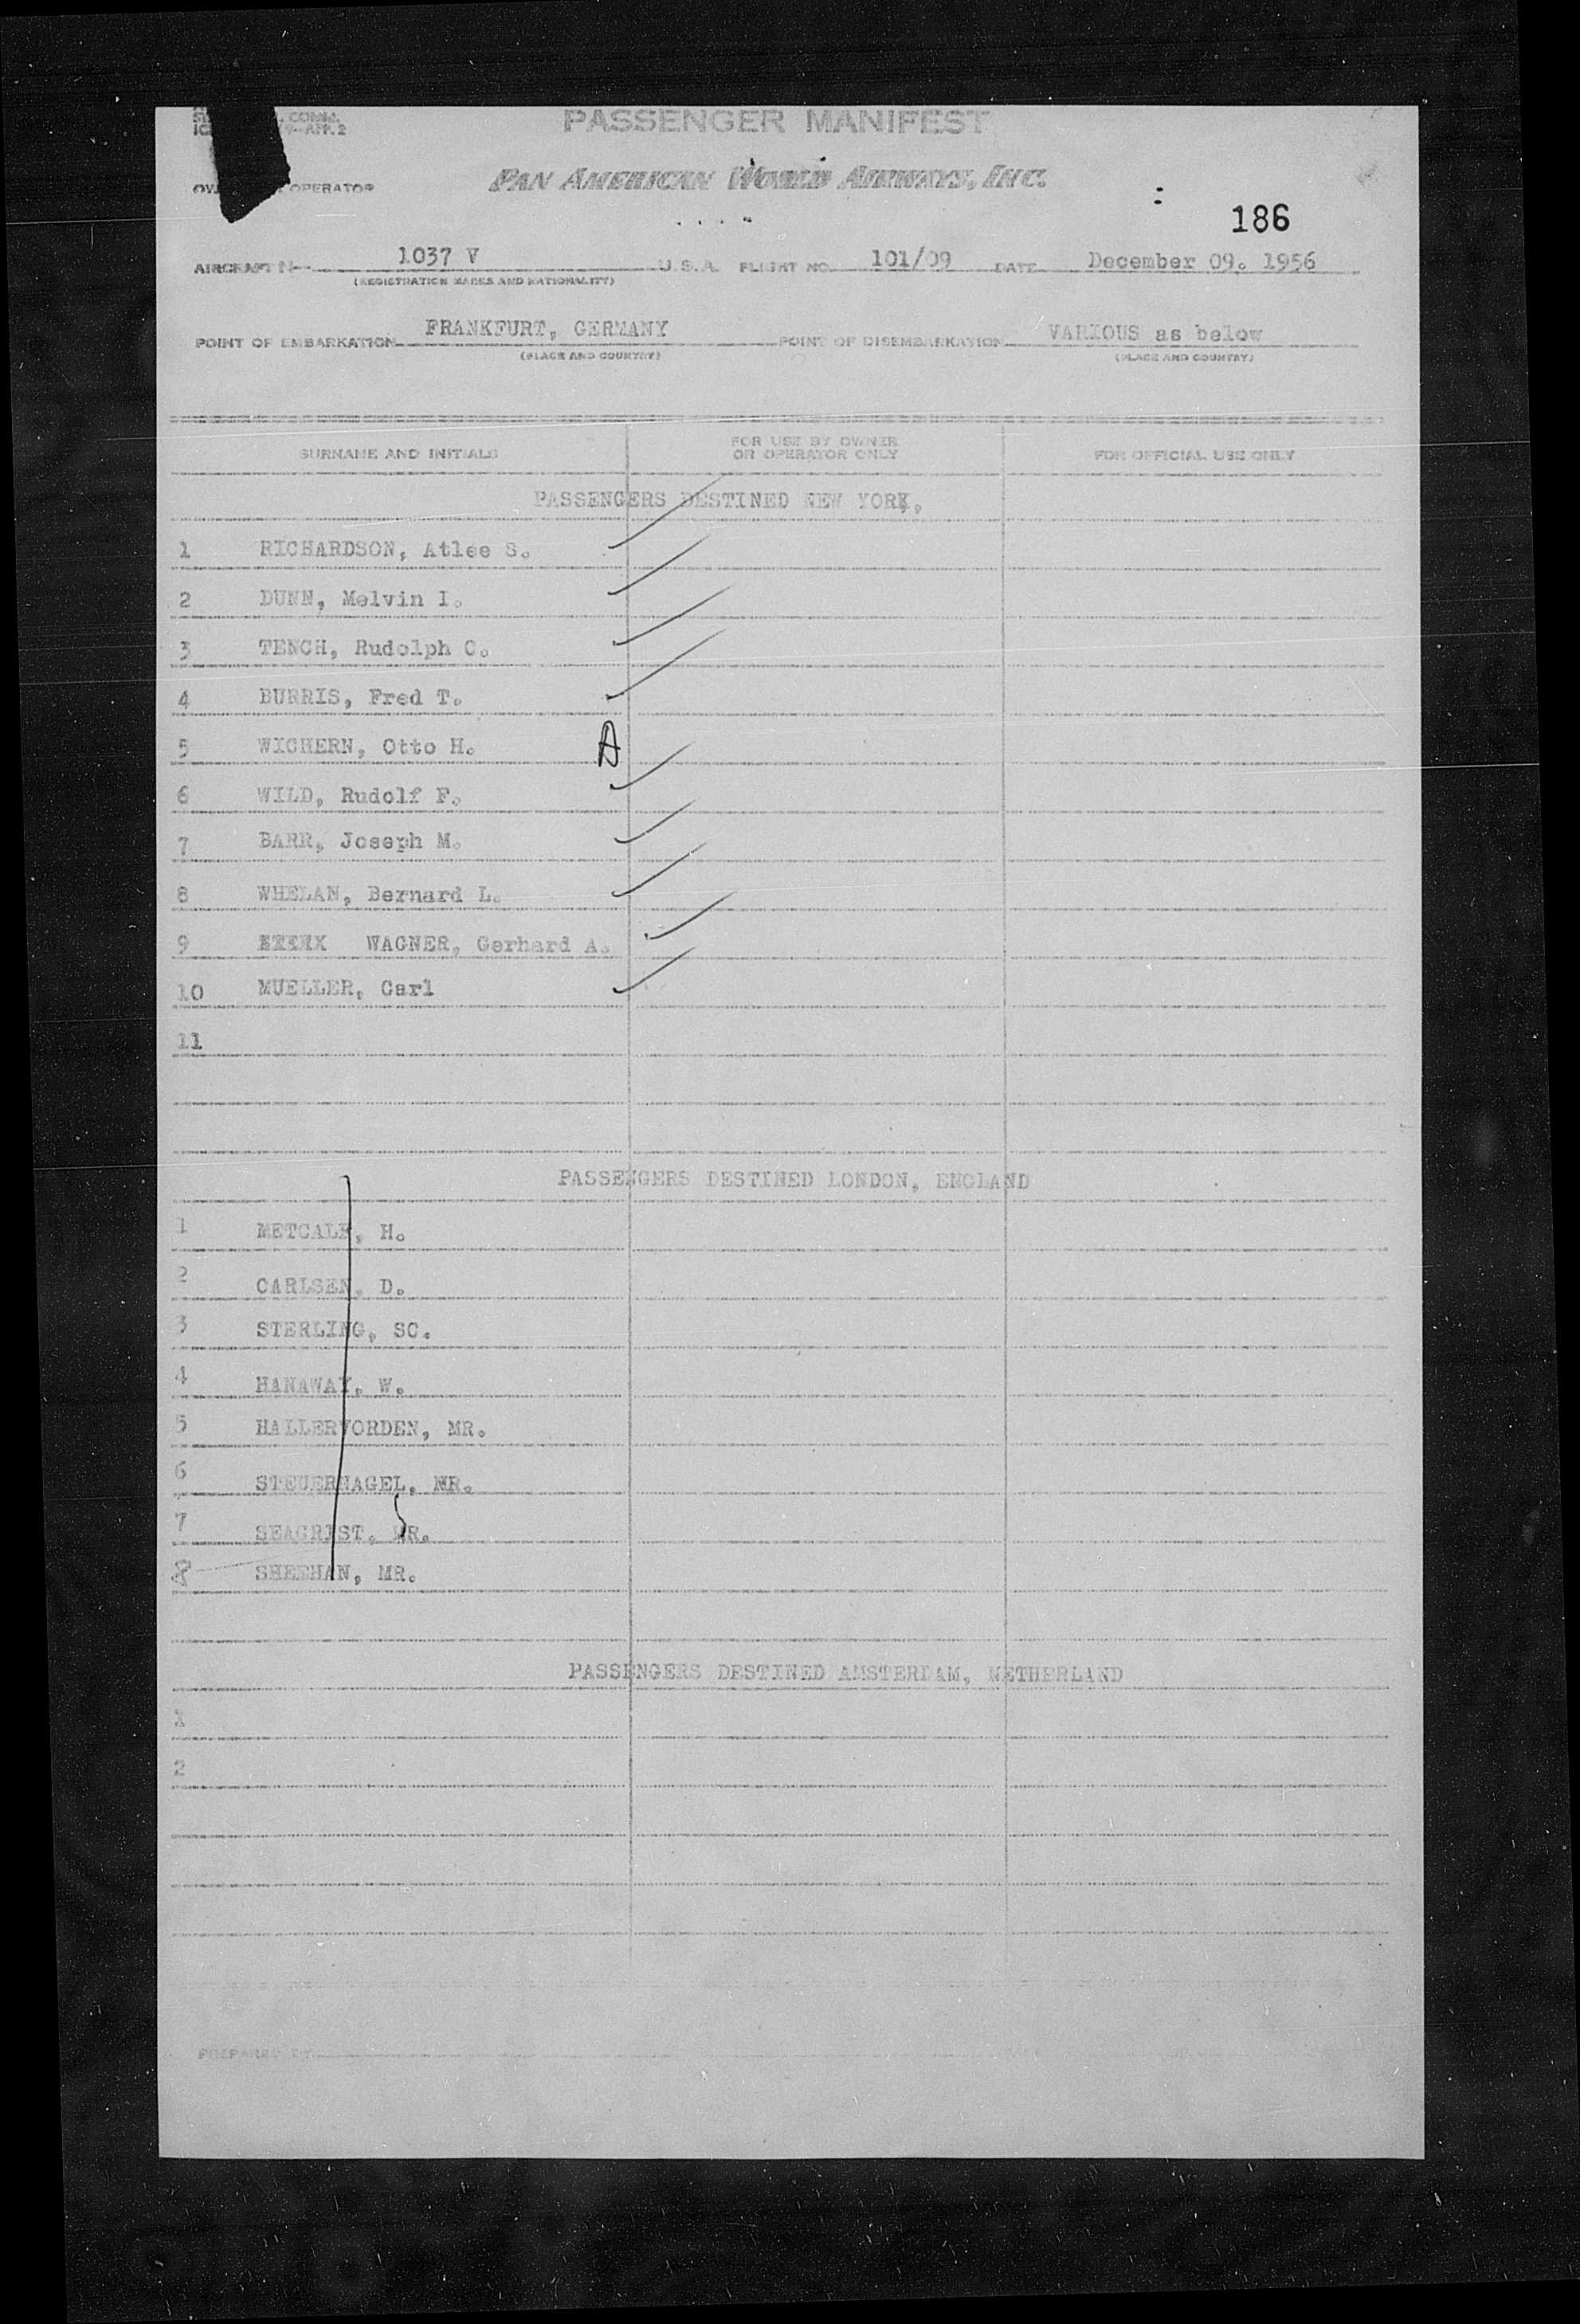 COMM.
APP. 2
PASSENGER MANIFEST
OPERATOR
PAN AMERICAN WORLD AIRWAYS, INC.
186
AIRCRAFT N 1037 V U.S.A. FLIGHT NO. 101/09 DATE December 09. 1956
(REGISTRATION MARKS AND NATIONALITY)
POINT OF EMBARKATION FRANKFURT, GERMANY POINT OF DISEMBARKATION VARIOUS as below
(PLACE AND COUNTRY) (PLACE AND COUNTRY)
SURNAME AND INITIALS FOR USE BY OWNER OR OPERATOR ONLY FOR OFFICIAL USE ONLY
PASSENGERS DESTINED NEW YORK,
1 RICHARDSON, Atlee S.
2 DUNN, Melvin I.
3 TENCH, Rudolph C.
4 BURRIS, Fred T.
5 WICHERN, Otto H. A
6 WILD, Rudolf F.
7 BARR, Joseph M.
8 WHELAN, Bernard L.
9 WAGNER, Gerhard A.
10 MUELLER, Carl
11
PASSENGERS DESTINED LONDON, ENGLAND
1 METCALF, H.
2 CARLSEN, D.
3 STERLING, SC.
4 HANAWAY, W.
5 HALLERVORDEN, MR.
6 STEUERNAGEL, MR.
7 SEACRIST, MR.
8 SHEEHAN, MR.
PASSENGERS DESTINED AMSTERDAM, NETHERLAND
1
2
PREPARED BY